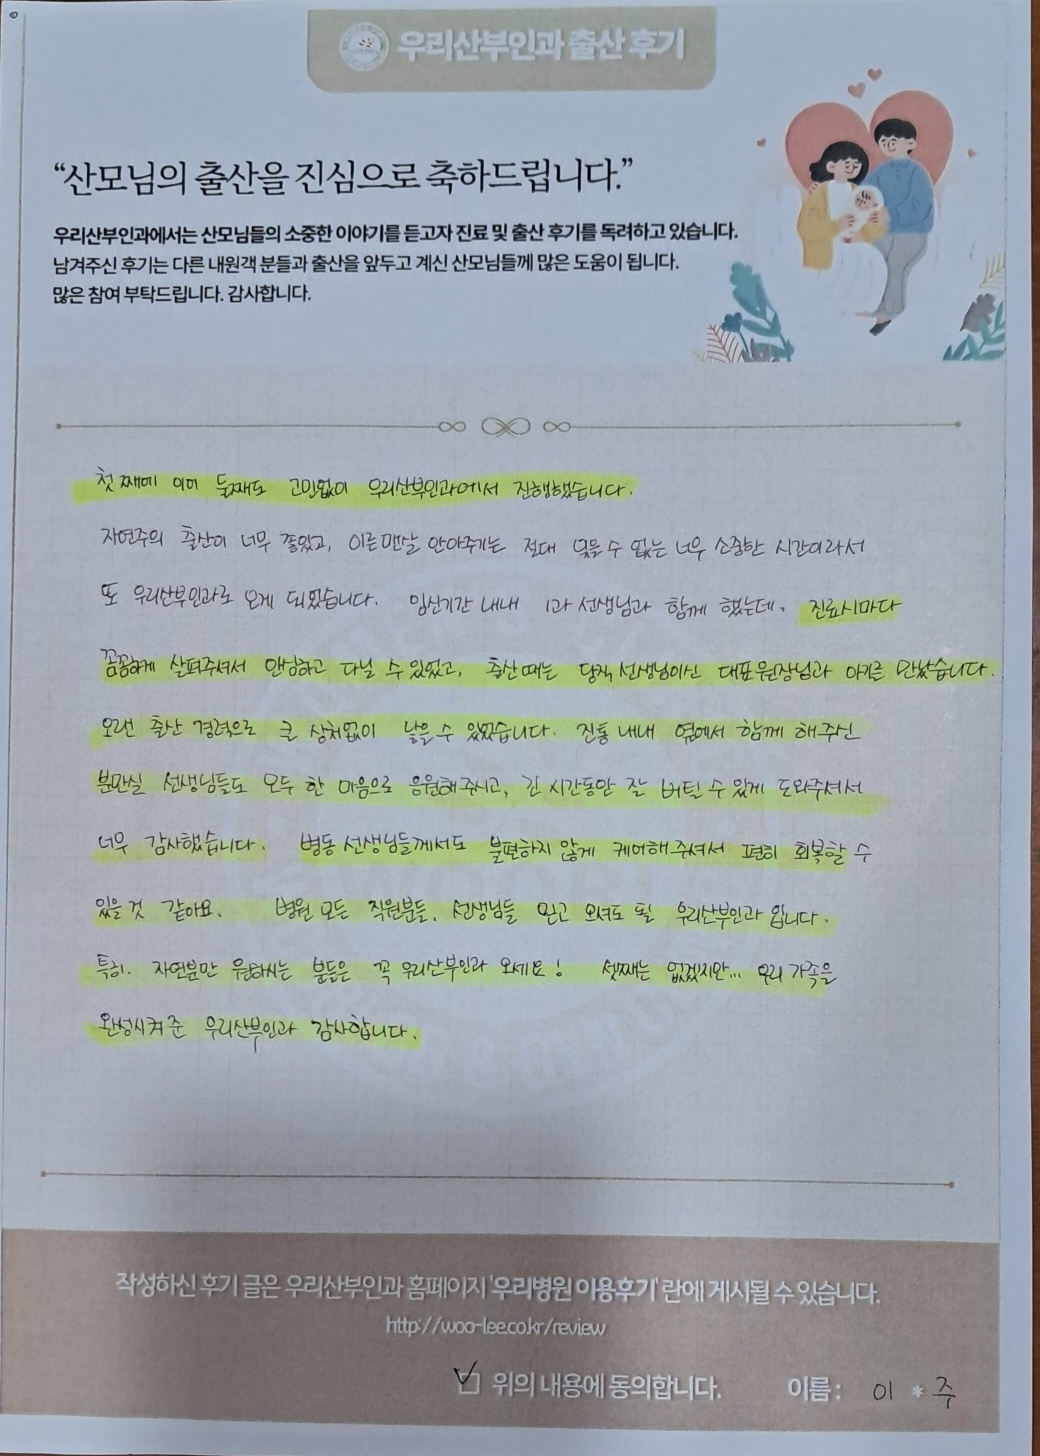 우리산부인과 출산 후기
“산모님의 출산을 진심으로 축하드립니다.”
우리산부인과에서는 산모님들의 소중한 이야기를 듣고자 진료 및 출산 후기를 독려하고 있습니다.
남겨주신 후기는 다른 내원객 분들과 출산을 앞두고 계신 산모님들께 많은 도움이 됩니다.
많은 참여 부탁드립니다. 감사합니다.
첫째에 이어 둘째도 고민없이 우리산부인과에서 진행했습니다.
자연주의 출산이 너무 좋았고, 이른 맨살 안아주기는 절대 잊을 수 없는 너무 소중한 시간이라서
또 우리산부인과로 오게 되었습니다. 임신기간 내내 1과 선생님과 함께 했는데, 진료시마다
꼼꼼하게 살펴주셔서 안심하고 다닐 수 있었고, 출산때는 당직 선생님이신 대표원장님과 아기를 만났습니다.
오랜 출산 경력으로 큰 상처없이 낳을 수 있었습니다. 진통 내내 옆에서 함께 해주신
분만실 선생님들도 모두 한 마음으로 응원해주시고, 긴 시간동안 잘 버틸 수 있게 도와주셔서
너무 감사했습니다. 병동 선생님들께서도 불편하지 않게 케어해주셔서 편히 회복할 수
있을것 같아요. 병원 모든 직원분들, 선생님들 믿고 오셔도 될 우리산부인과 입니다.
특히. 자연분만 원하시는 분들은 꼭 우리산부인과 오세요! 셋째는 없겠지만... 우리 가족을
완성시켜준 우리산부인과 감사합니다.
작성하신 후기 글은 우리산부인과 홈페이지 '우리병원 이용후기' 란에 게시될 수 있습니다.
http://woo-lee.co.kr/review
위의 내용에 동의합니다. 이름 : 이 * 주